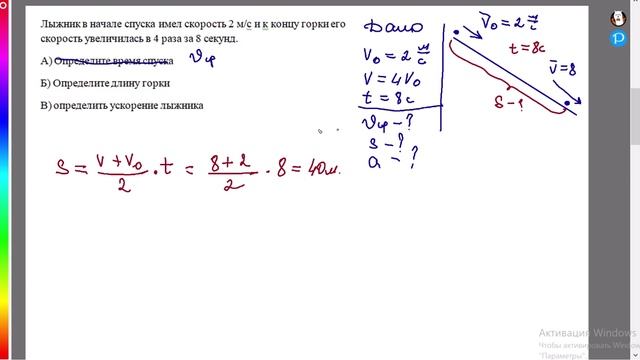 Лыжник в начале спуска имел скорость 2 м/с и к концу горки его
скорость увеличилась в 4 раза за 8 секунд.
А) Определите время спуска υср
Б) Определите длину горки
В) определить ускорение лыжника
Дано
V₀ = 2 м/с
V = 4V₀
t = 8c
υср – ?
s – ?
a – ?
V₀ = 2 м/с
t = 8c
V = 8
S – ?
S = (V + V₀)/2 · t = (8+2)/2 · 8 = 40м.
Активация Windows
Чтобы активировать Window
"Параметры".